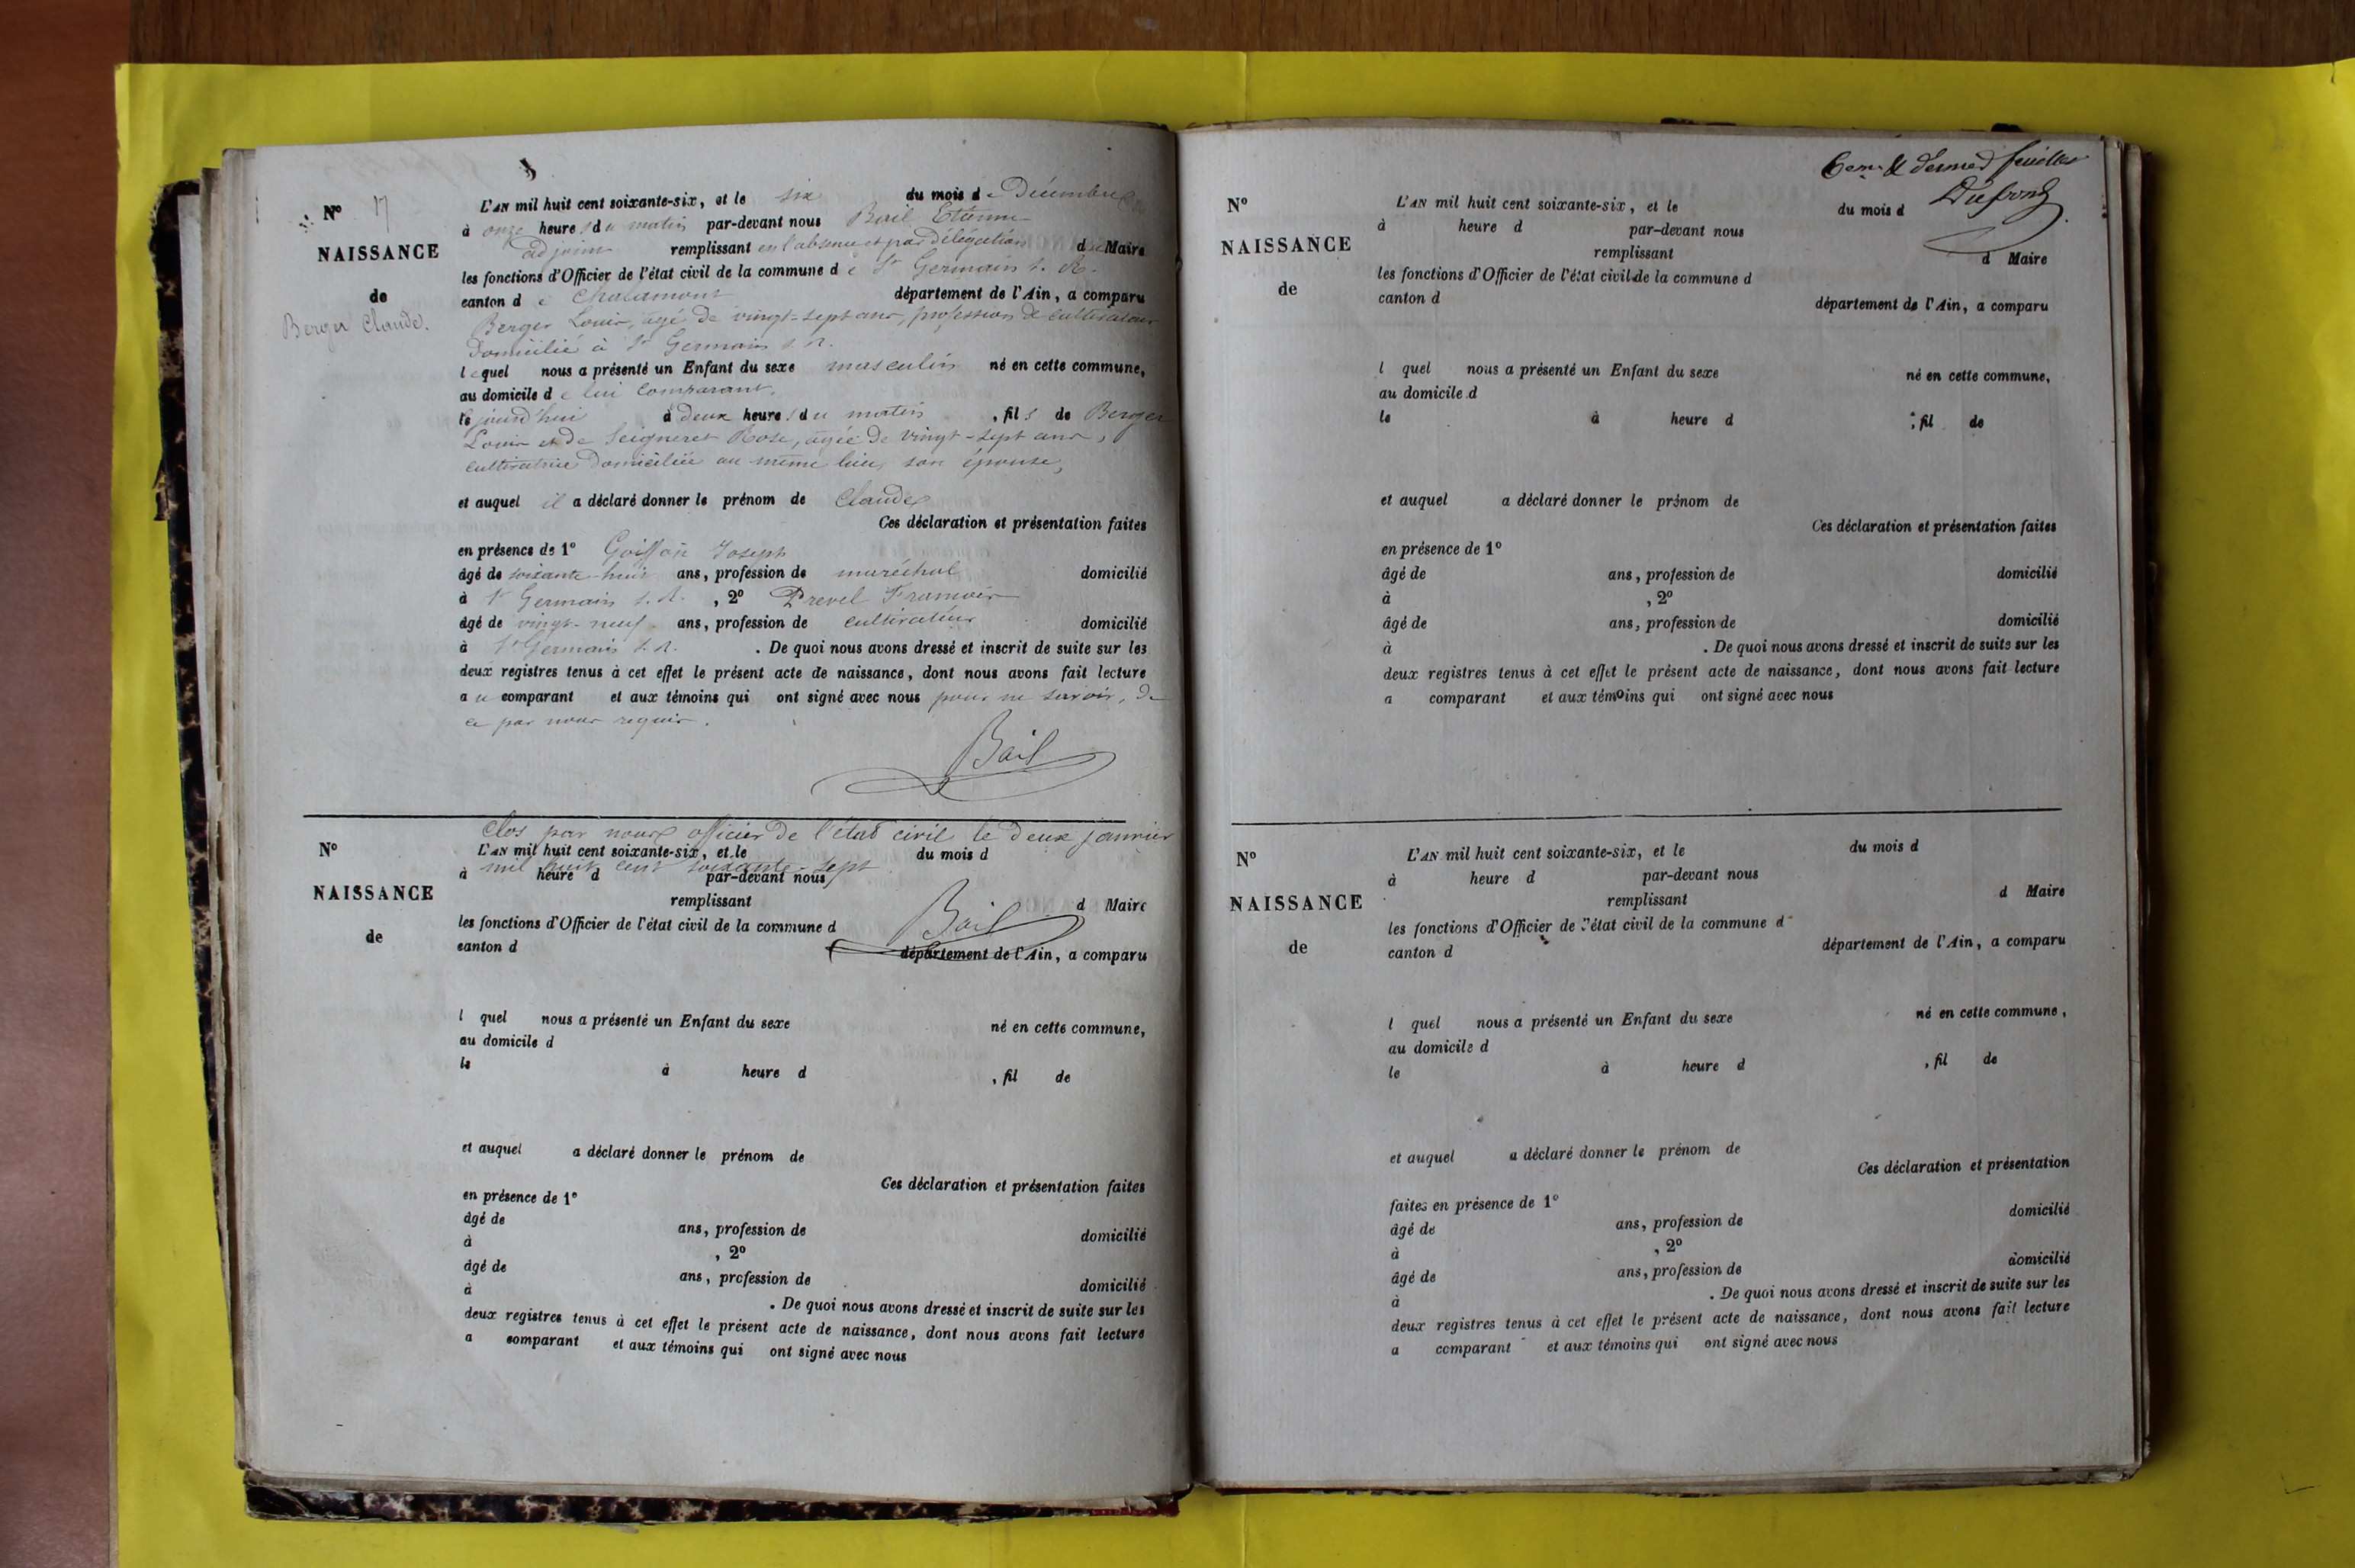 Nº 17
NAISSANCE
de
Berger Claude.
L'AN mil huit cent soixante-six, et le six du mois de Décembre
à onze heures du matin par-devant nous Bail Etienne
adjoint remplissant en l'absence et par délégation du Maire
les fonctions d'Officier de l'état civil de la commune de St Germain s. R.
canton de Chalamont département de l'Ain, a comparu
Berger Louis, âgé de vingt-sept ans, profession de cultivateur
domicilié à St Germain s. R.
lequel nous a présenté un Enfant du sexe masculin né en cette commune,
au domicile de lui comparant,
le jourd'hui à deux heures du matin, fils de Berger
Louis et de Seigneret Rose, âgée de vingt-sept ans,
cultivatrice domiciliée au même lieu, son épouse,
et auquel il a déclaré donner le prénom de Claude
Ces déclaration et présentation faites
en présence de 1º Goiffon Joseph
âgé de soixante-huit ans, profession de maréchal domicilié
à St Germain s. R. , 2º Prevel François
âgé de vingt-neuf ans, profession de cultivateur domicilié
à St Germain s. R. . De quoi nous avons dressé et inscrit de suite sur les
deux registres tenus à cet effet le présent acte de naissance, dont nous avons fait lecture
au comparant et aux témoins qui ont signé avec nous pour ne savoir, de
ce par nous requis.
Bail
Clos par nous officier de l'état civil le deux janvier
mil huit cent soixante-sept
Bail
Nº
NAISSANCE
de
L'AN mil huit cent soixante-six, et le du mois d
à heure d par-devant nous
remplissant d Maire
les fonctions d'Officier de l'état civil de la commune d
canton d département de l'Ain, a comparu
l quel nous a présenté un Enfant du sexe né en cette commune,
au domicile d
le à heure d , fil de
et auquel a déclaré donner le prénom de
Ces déclaration et présentation faites
en présence de 1º
âgé de ans, profession de domicilié
à , 2º
âgé de ans, profession de domicilié
à . De quoi nous avons dressé et inscrit de suite sur les
deux registres tenus à cet effet le présent acte de naissance, dont nous avons fait lecture
a comparant et aux témoins qui ont signé avec nous
6eme & dernier feuillet
Dufond
Nº
NAISSANCE
de
L'AN mil huit cent soixante-six, et le du mois d
à heure d par-devant nous
remplissant d Maire
les fonctions d'Officier de l'état civil de la commune d
canton d département de l'Ain, a comparu
l quel nous a présenté un Enfant du sexe né en cette commune,
au domicile d
le à heure d , fil de
et auquel a déclaré donner le prénom de
Ces déclaration et présentation faites
en présence de 1º
âgé de ans, profession de domicilié
à , 2º
âgé de ans, profession de domicilié
à . De quoi nous avons dressé et inscrit de suite sur les
deux registres tenus à cet effet le présent acte de naissance, dont nous avons fait lecture
a comparant et aux témoins qui ont signé avec nous
Nº
NAISSANCE
de
L'AN mil huit cent soixante-six, et le du mois d
à heure d par-devant nous
remplissant d Maire
les fonctions d'Officier de l'état civil de la commune d
canton d département de l'Ain, a comparu
l quel nous a présenté un Enfant du sexe né en cette commune,
au domicile d
le à heure d , fil de
et auquel a déclaré donner le prénom de
Ces déclaration et présentation
faites en présence de 1º
âgé de ans, profession de domicilié
à , 2º
âgé de ans, profession de domicilié
à . De quoi nous avons dressé et inscrit de suite sur les
deux registres tenus à cet effet le présent acte de naissance, dont nous avons fait lecture
a comparant et aux témoins qui ont signé avec nous